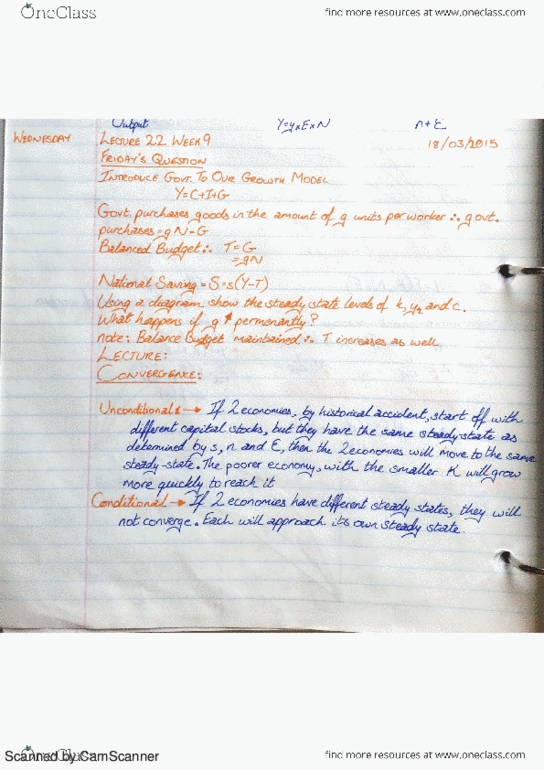 OneClass
find more resources at www.oneclass.com
Output Y=yxExN n+E
WEDNESDAY LECTURE 22 WEEK 9 18/03/2015
FRIDAY'S QUESTION
INTRODUCE GOVT. TO OUR GROWTH MODEL
Y=C+I+G
Govt. purchases goods in the amount of g units per worker ∴ govt.
purchases = gN = G
Balanced Budget ∴ T=G
=gN
National Saving = S = s(Y-T)
Using a diagram show the steady state levels of k, y, and c.
What happens if g ↑ permenantly?
note: Balance Budget maintained ∴ T increases as well
LECTURE:
CONVERGENCE:
Unconditional → If 2 economies, by historical accident, start off with
different capital stocks, but they have the same steady-state as
determined by s, n and E, then the 2 economies will move to the same
steady-state. The poorer economy, with the smaller K will grow
more quickly to reach it
Conditional → If 2 economies have different steady states, they will
not converge. Each will approach its own steady state.
OneClass
Scanned by CamScanner
find more resources at www.oneclass.com